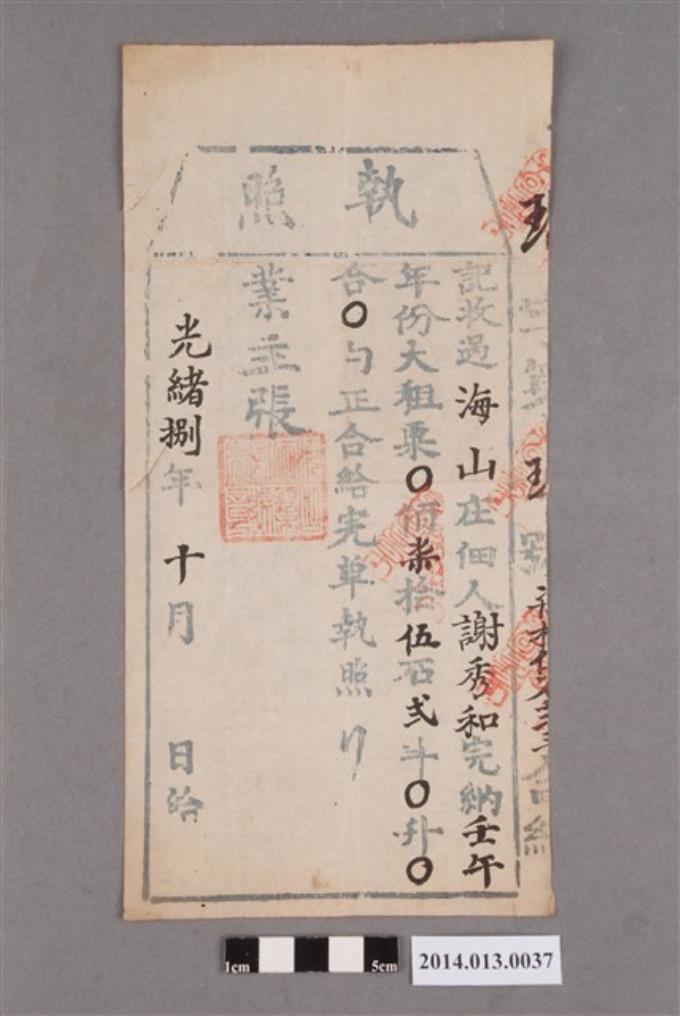 執照
記收過海山庄佃人謝秀和完納壬午
年份大租粟〇佰柒拾伍石弍斗〇升〇
合〇勺正合給完單執照
業主張
光緒捌年十月 日給
1cm 5cm
2014.013.0037